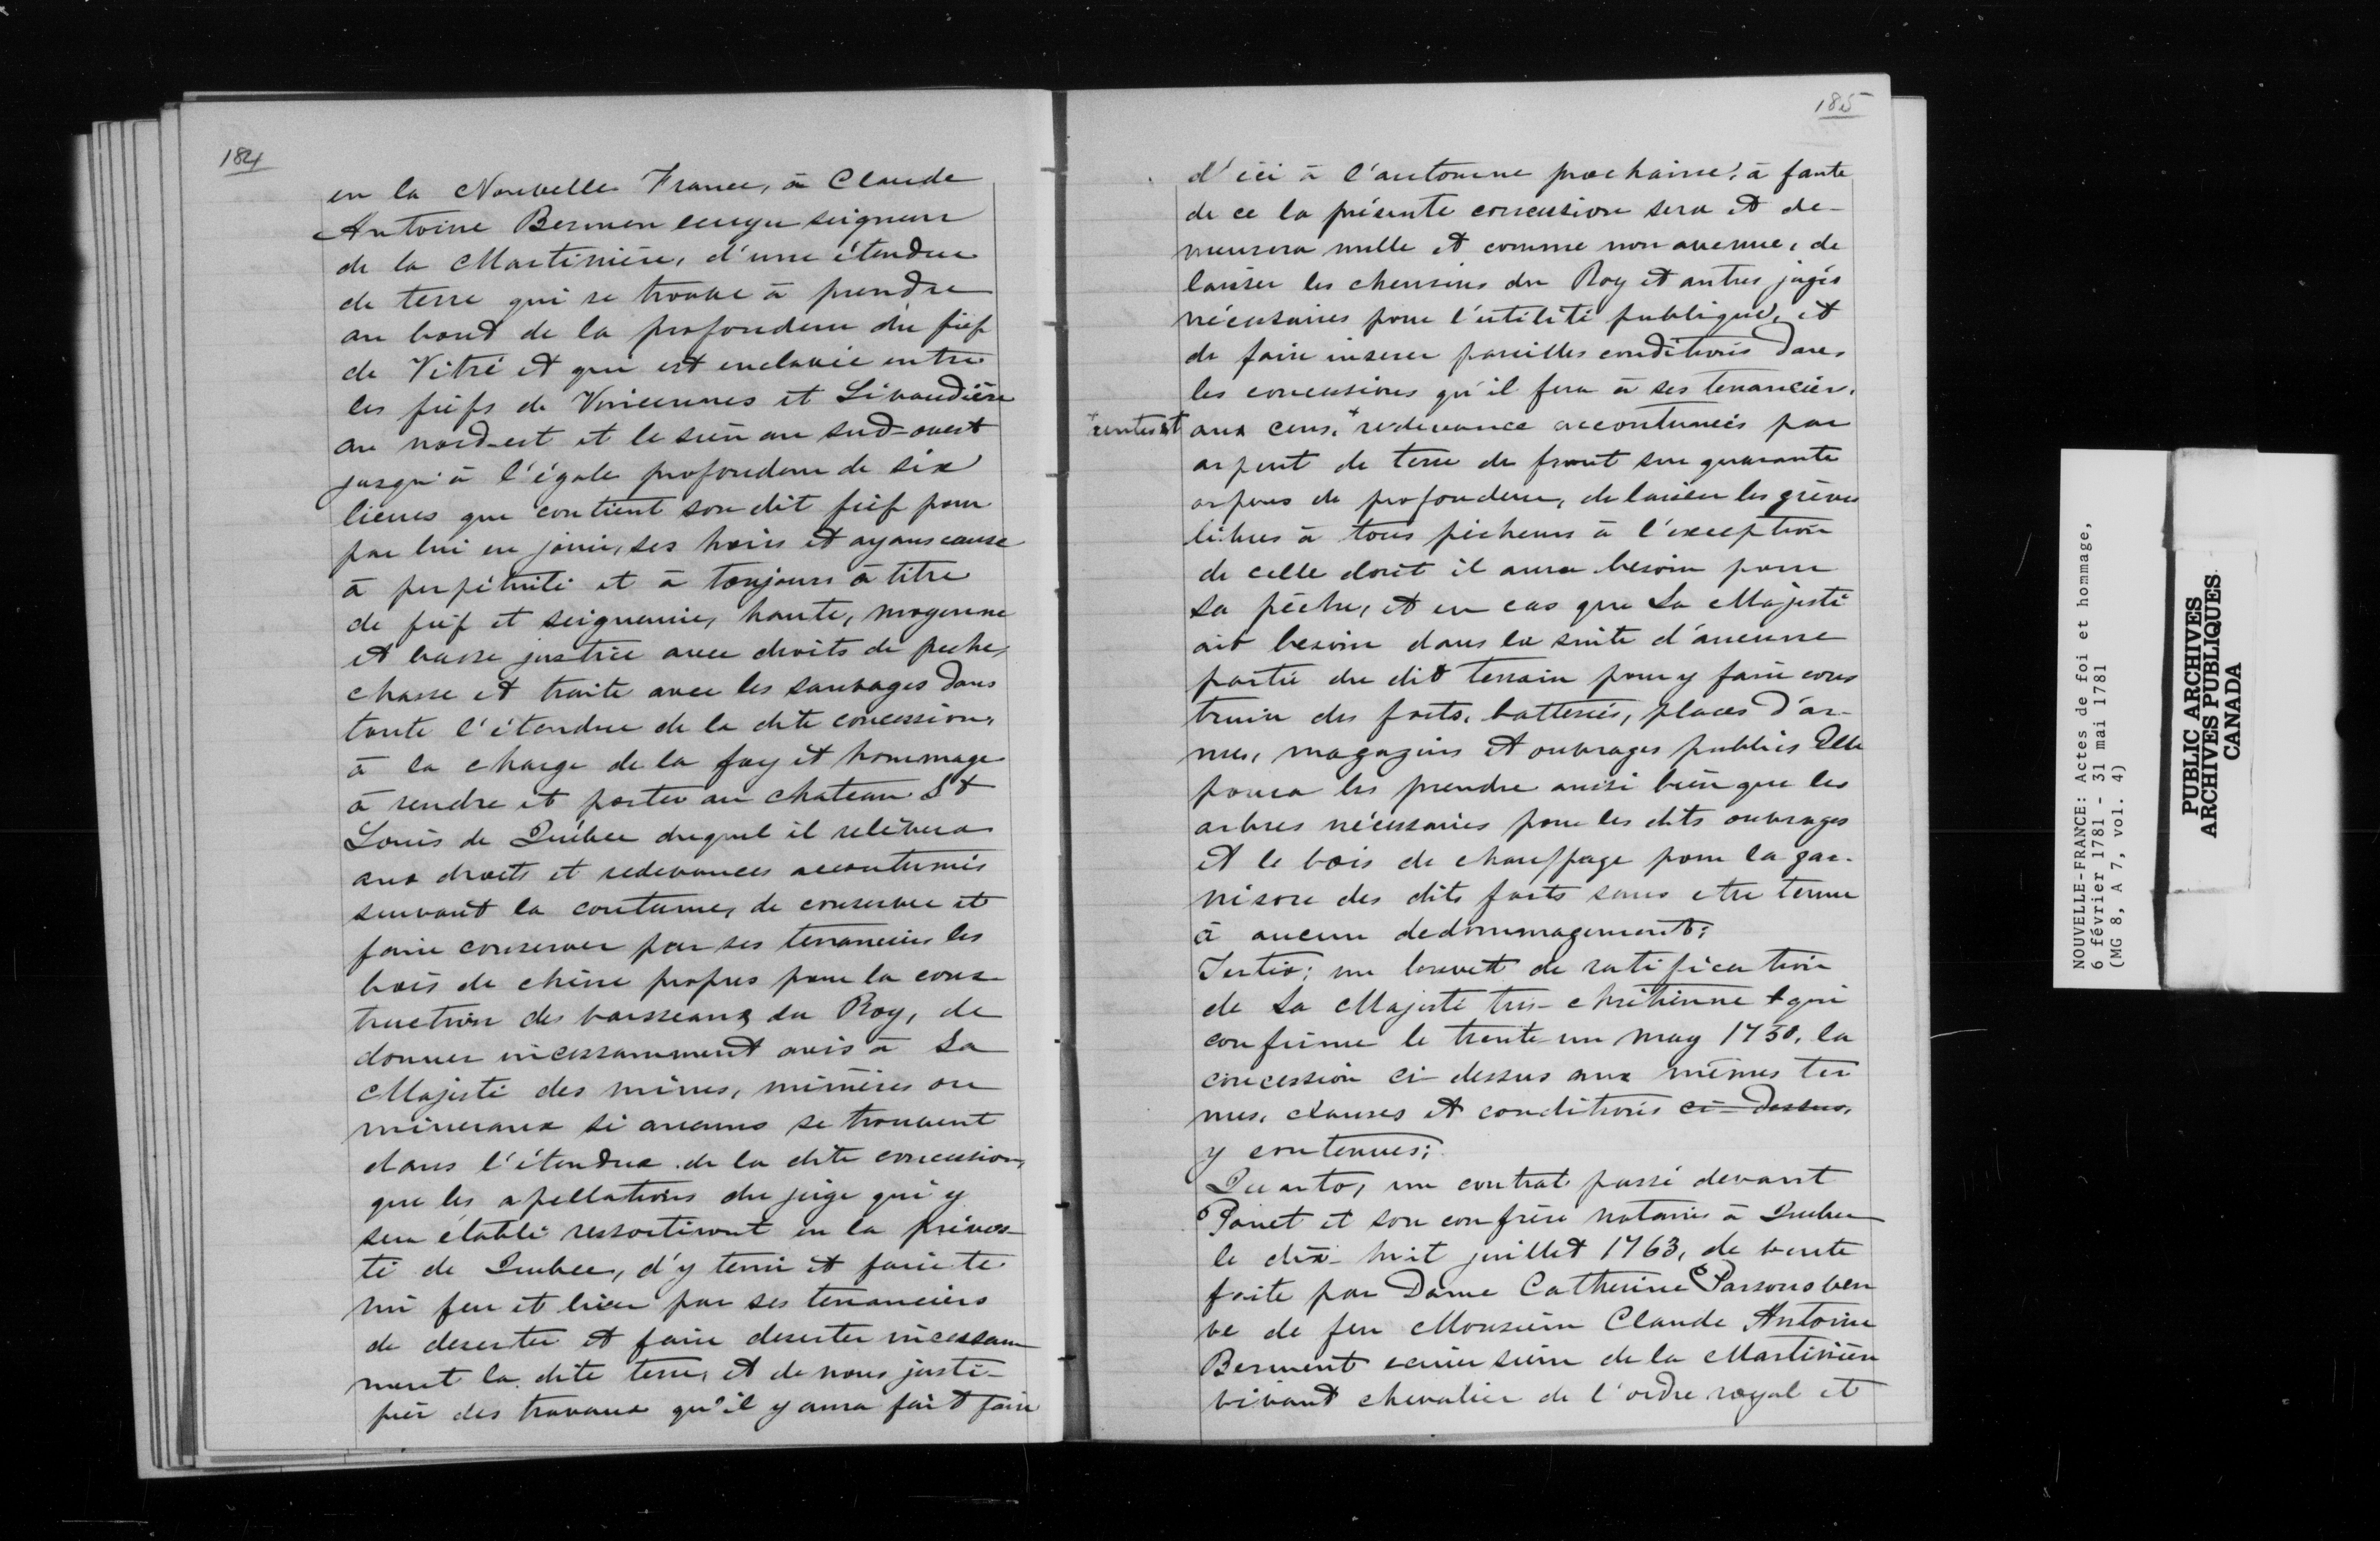 184
en la Nouvelle France, à Claude
Antoine Bermen ecuyer seigneur
de la Martinière, d'une étendue
de terre qui se trouve à prendre
au bout de la profondeur du fief
de Vitré et qui est enclavée entre
les fiefs de Vincennes et Livaudière
au nord-est et le sien au sud-ouest
jusqu'à l'égale profondeur de six
lieues que contient son dit fief pour
par lui en jouir, ses hoirs et ayans cause
à perpétuité et à toujours à titre
de fief et seigneurie, haute, moyenne
et basse justice avec droits de peche,
chasse et traite avec les sauvages dans
toute l'étendue de la dite concession,
à la charge de la foy et hommage
à rendre et porter au chateau St
Louis de Québec duquel il relèvera
aux droits et redevances accoutumés
suivant la coutume, de conserver et
faire conserver par ses tenanciers les
bois de chêne propres pour la cons
truction des vaisseaux du Roy, de
donner incessamment avis à Sa
Majesté des mines, minières ou
mineraux si aucuns se trouvent
dans l'étendue de la dite concession,
que les apellations du juge qui y
sera établi ressortiront en la prévos-
té de Quebec, d'y tenir et faire te
nir feu et lieu par ses tenanciers
de deserter et faire deserter incessam
ment la dite terre, et de nous justi-
fier des travaux qu'il y aura fait faire
185
d'ici à l'automne prochaine, à faute
de ce la présente concession sera et de-
meurera nulle et comme non avenue, de
laisser les chemins du Roy et autres jugés
nécessaires pour l'utilité publique, et
de faire inserer pareilles conditions dans
les concessions qu'il fera à ses tenanciers,
+ rentes et aux cens, + redevance accoutumées par
arpent de terre de front sur quarante
arpens de profondeur, de laisser les grèves
libres à tous pêcheurs à l'exception
de celle dont il aura besoin pour
sa pêche, et en cas que Sa Majesté
ait besoin dans la suite d'aucune
partie du dit terrain pour y faire cons
truire des forts, batteries, places d'ar-
mes, magazins et ouvrages publics Elle
poura les prendre aussi bien que les
arbres nécessaires pour les dits ouvrages
et le bois de chauffage pour la gar-
nison des dits forts sans etre tenue
à aucun dedommagement;
Tertio; un brevet de ratification
de Sa Majesté très-chrétienne + qui
confirme le trente un may 1750, la
concession ci-dessus aux mêmes ter
mes, clauses et conditions ci-dessus,
y contenues;
Quarto, un contrat passé devant
Panet et son confrère notaires à Quebec
le dix-huit juillet 1763, de vente
faite par Dame Catherine Parsons veu
ve de feu Monsieur Claude Antoine
Berment ecuier sieur de la Martinière
vivant chevalier de l'ordre royal et
NOUVELLE-FRANCE: Actes de foi et hommage,
6 février 1781 - 31 mai 1781
(MG 8, A 7, vol. 4)
PUBLIC ARCHIVES
ARCHIVES PUBLIQUES
CANADA